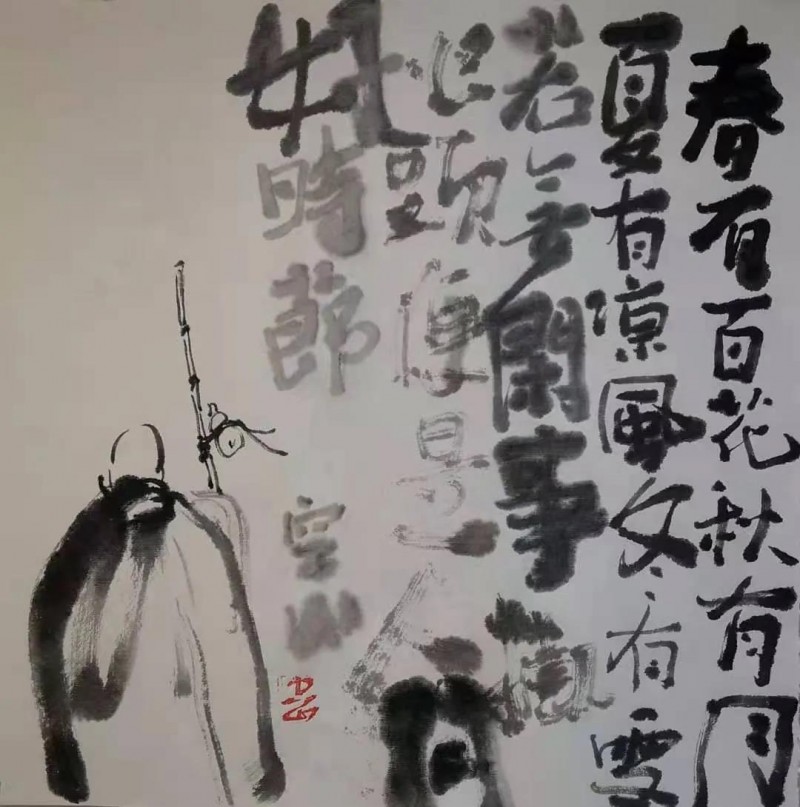 春有百花秋有月
夏有凉風冬有雪
若无閑事掛
心頭便是人間
好時節
空山